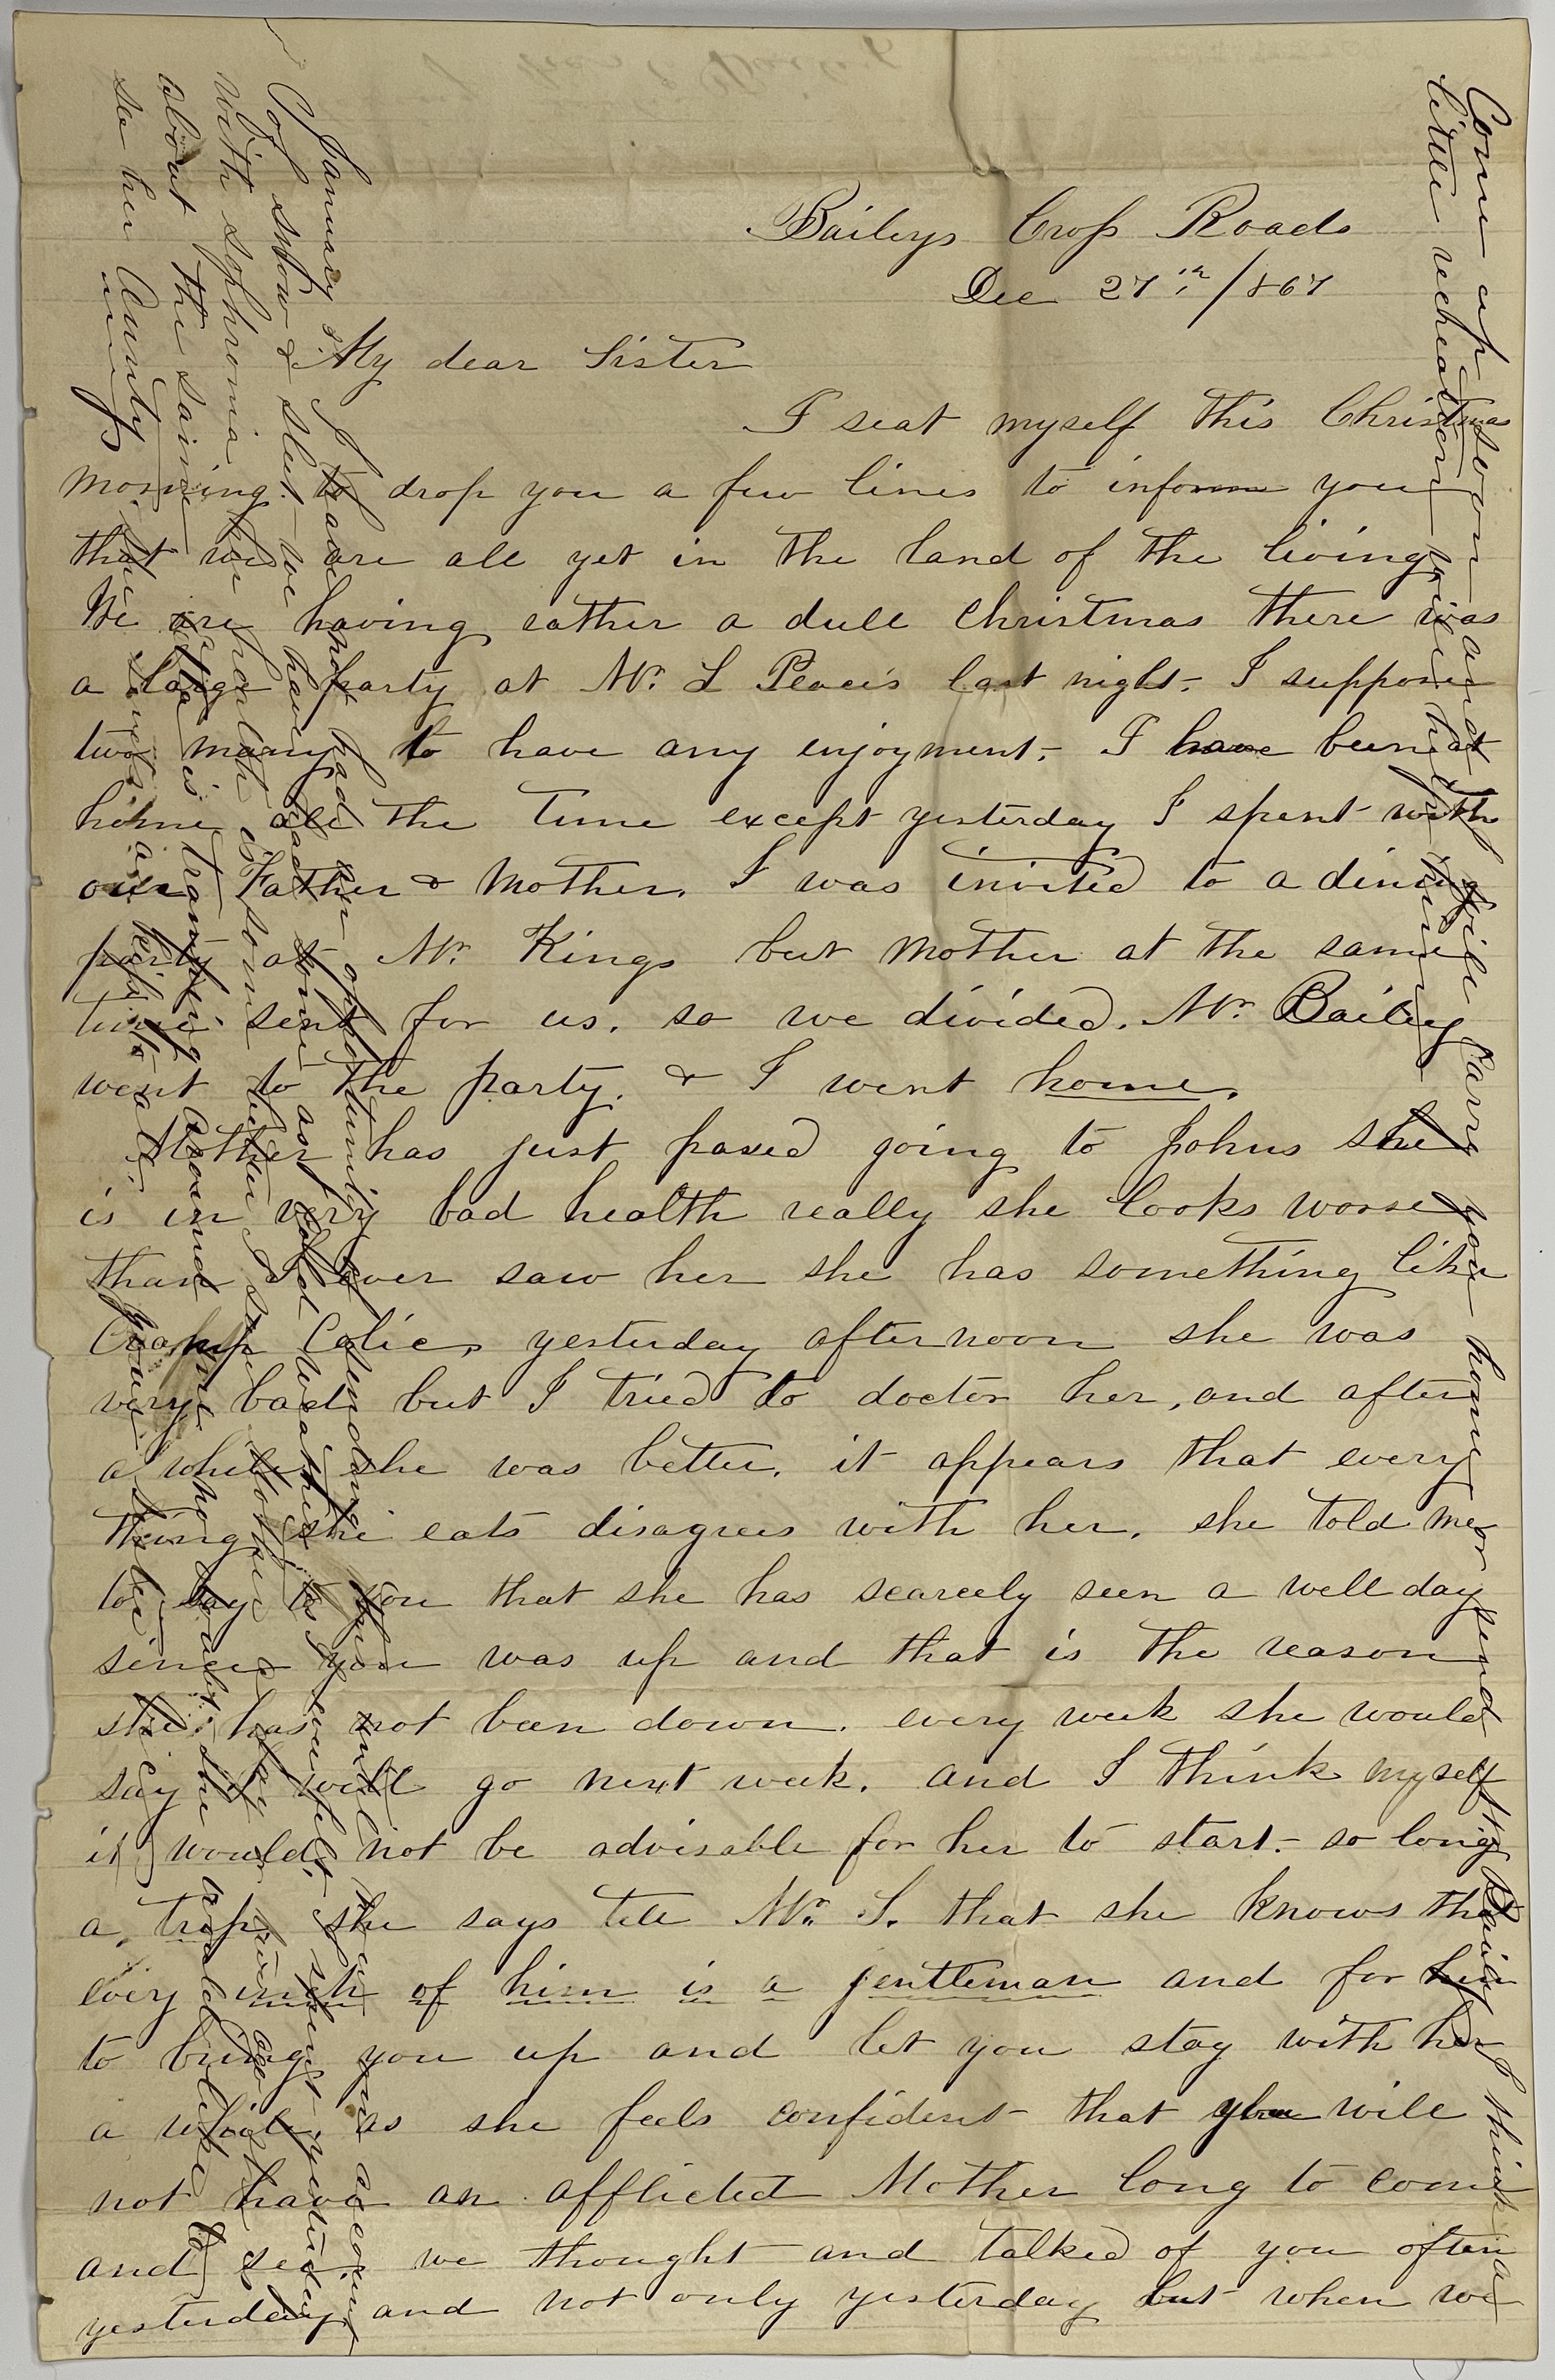 Baileys Cross Roads
Dec 27th /867
My dear Sister
I seat myself this Christmas
morning to drop you a few lines to inform you
that we are all yet in the land of the living
We are having rather a dull Christmas there was
a large party at Mr. L Peaces last night. I suppose
two many to have any enjoyment. I have been at
home all the time except yesterday I spent with
our Father & Mother. I was invited to a dining
party at Mr. Kings but Mother at the same
time sent for us. so we divided. Mr. Bailey
went to the party. & I went home.
Mother has just passed going to Johns she
is in very bad health really she looks worse
than I ever saw her she has something like
Cramp Colic, yesterday afternoon she was
very bad but I tried to doctor her, and after
a while she was better. it appears that every
thing she eats disagrees with her. she told me
to say to you that she has scarcely seen a well day
since you was up and that is the reason
she has not been down. every week she would
say I will go next week. and I think myself
it would not be advisable for her to start so long
a trip. she says tell Mr. S. that she knows that
every inch of him is a gentleman and for him
to bring you up and let you stay with her
a while as she feels confident that you will
not have an afflicted Mother long to come
and see. we thought and talked of you often
yesterday and not only yesterday but when we
January 3rd I have not had an opportunity of sending you mail
of snow & sleet we have had some as cold weather as I ever felt
with sophronia her health is some better
about the same is tramping around no doubt she would like
see her Aunty
Come up soon and stay will carry you home or send Mr Bailey I think a
little recreation would help